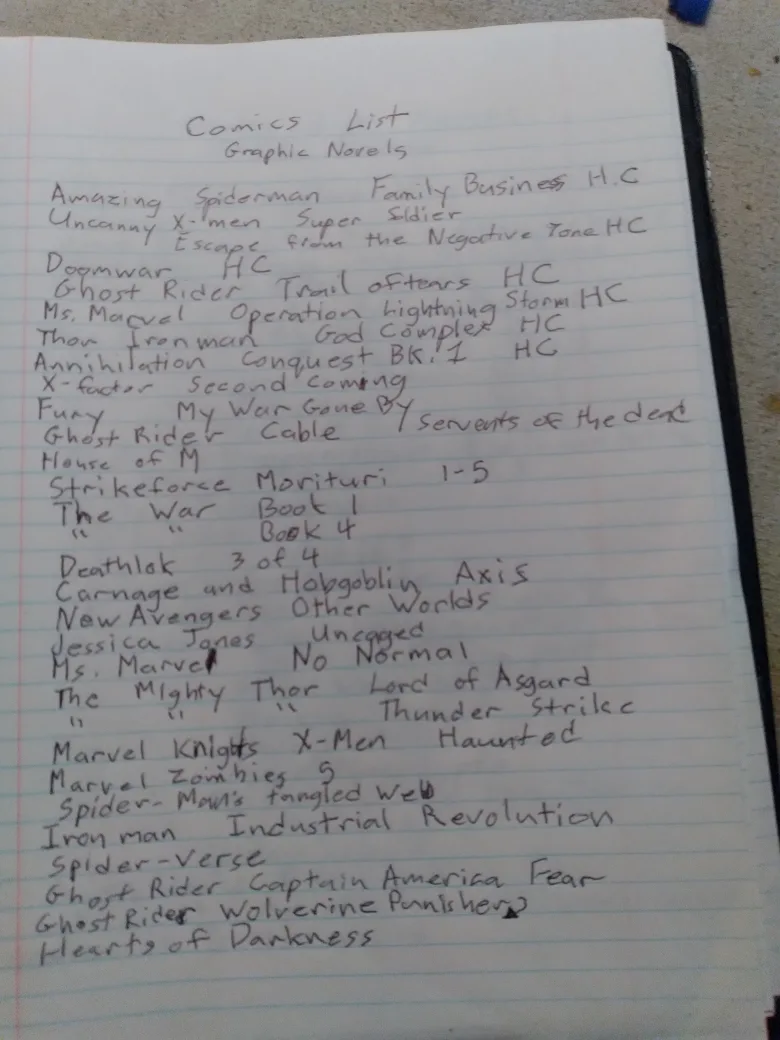 Comics List
Graphic Novels
Amazing Spiderman Family Business H.C
Uncanny X-men Super Sldier
Escape from the Negative Zone HC
Doomwar HC
Ghost Rider Trail of tears HC
Ms. Marvel Operation Lightning Storm HC
Thor Iron man God Complex HC
Annihilation Conquest BK. 1 HC
X-factor Second Coming
Fury My War Gone By
Ghost Rider Cable / Servents of the dead
House of M
Strikeforce Morituri 1-5
The War Book 1
" " Book 4
Deathlok 3 of 4
Carnage and Hobgoblin Axis
New Avengers Other Worlds
Jessica Jones Uncaged
Ms. Marvel No Normal
The Mighty Thor Lord of Asgard
" " " Thunder Strike
Marvel Knights X-Men Haunted
Marvel Zombies 5
Spider-Man's tangled Web
Iron man Industrial Revolution
Spider-Verse
Ghost Rider Captain America Fear
Ghost Rider Wolverine Punisher
Hearts of Darkness